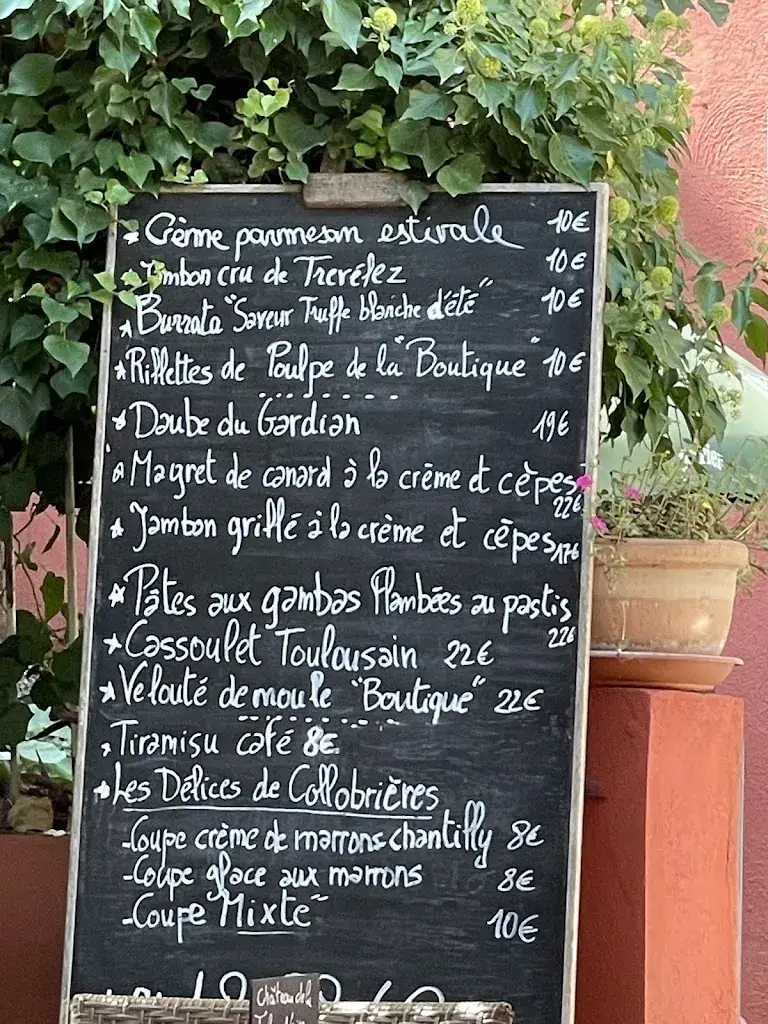 * Crème parmesan estivale 10€
* Jambon cru de Trevélez 10€
* Burrata "Saveur Truffe blanche d'été" 10€
* Rillettes de Poulpe de la "Boutique" 10€
* Daube du Gardian 19€
* Magret de canard à la crème et cèpes 22€
* Jambon grillé à la crème et cêpes 17€
* Pâtes aux gambas flambées au pastis 22€
* Cassoulet Toulousain 22€
* Velouté de moule "Boutique" 22€
* Tiramisu café 8€
* Les Délices de Collobrières
- Coupe crème de marrons chantilly 8€
- Coupe glace aux marrons 8€
- Coupe "Mixte" 10€
Château de la